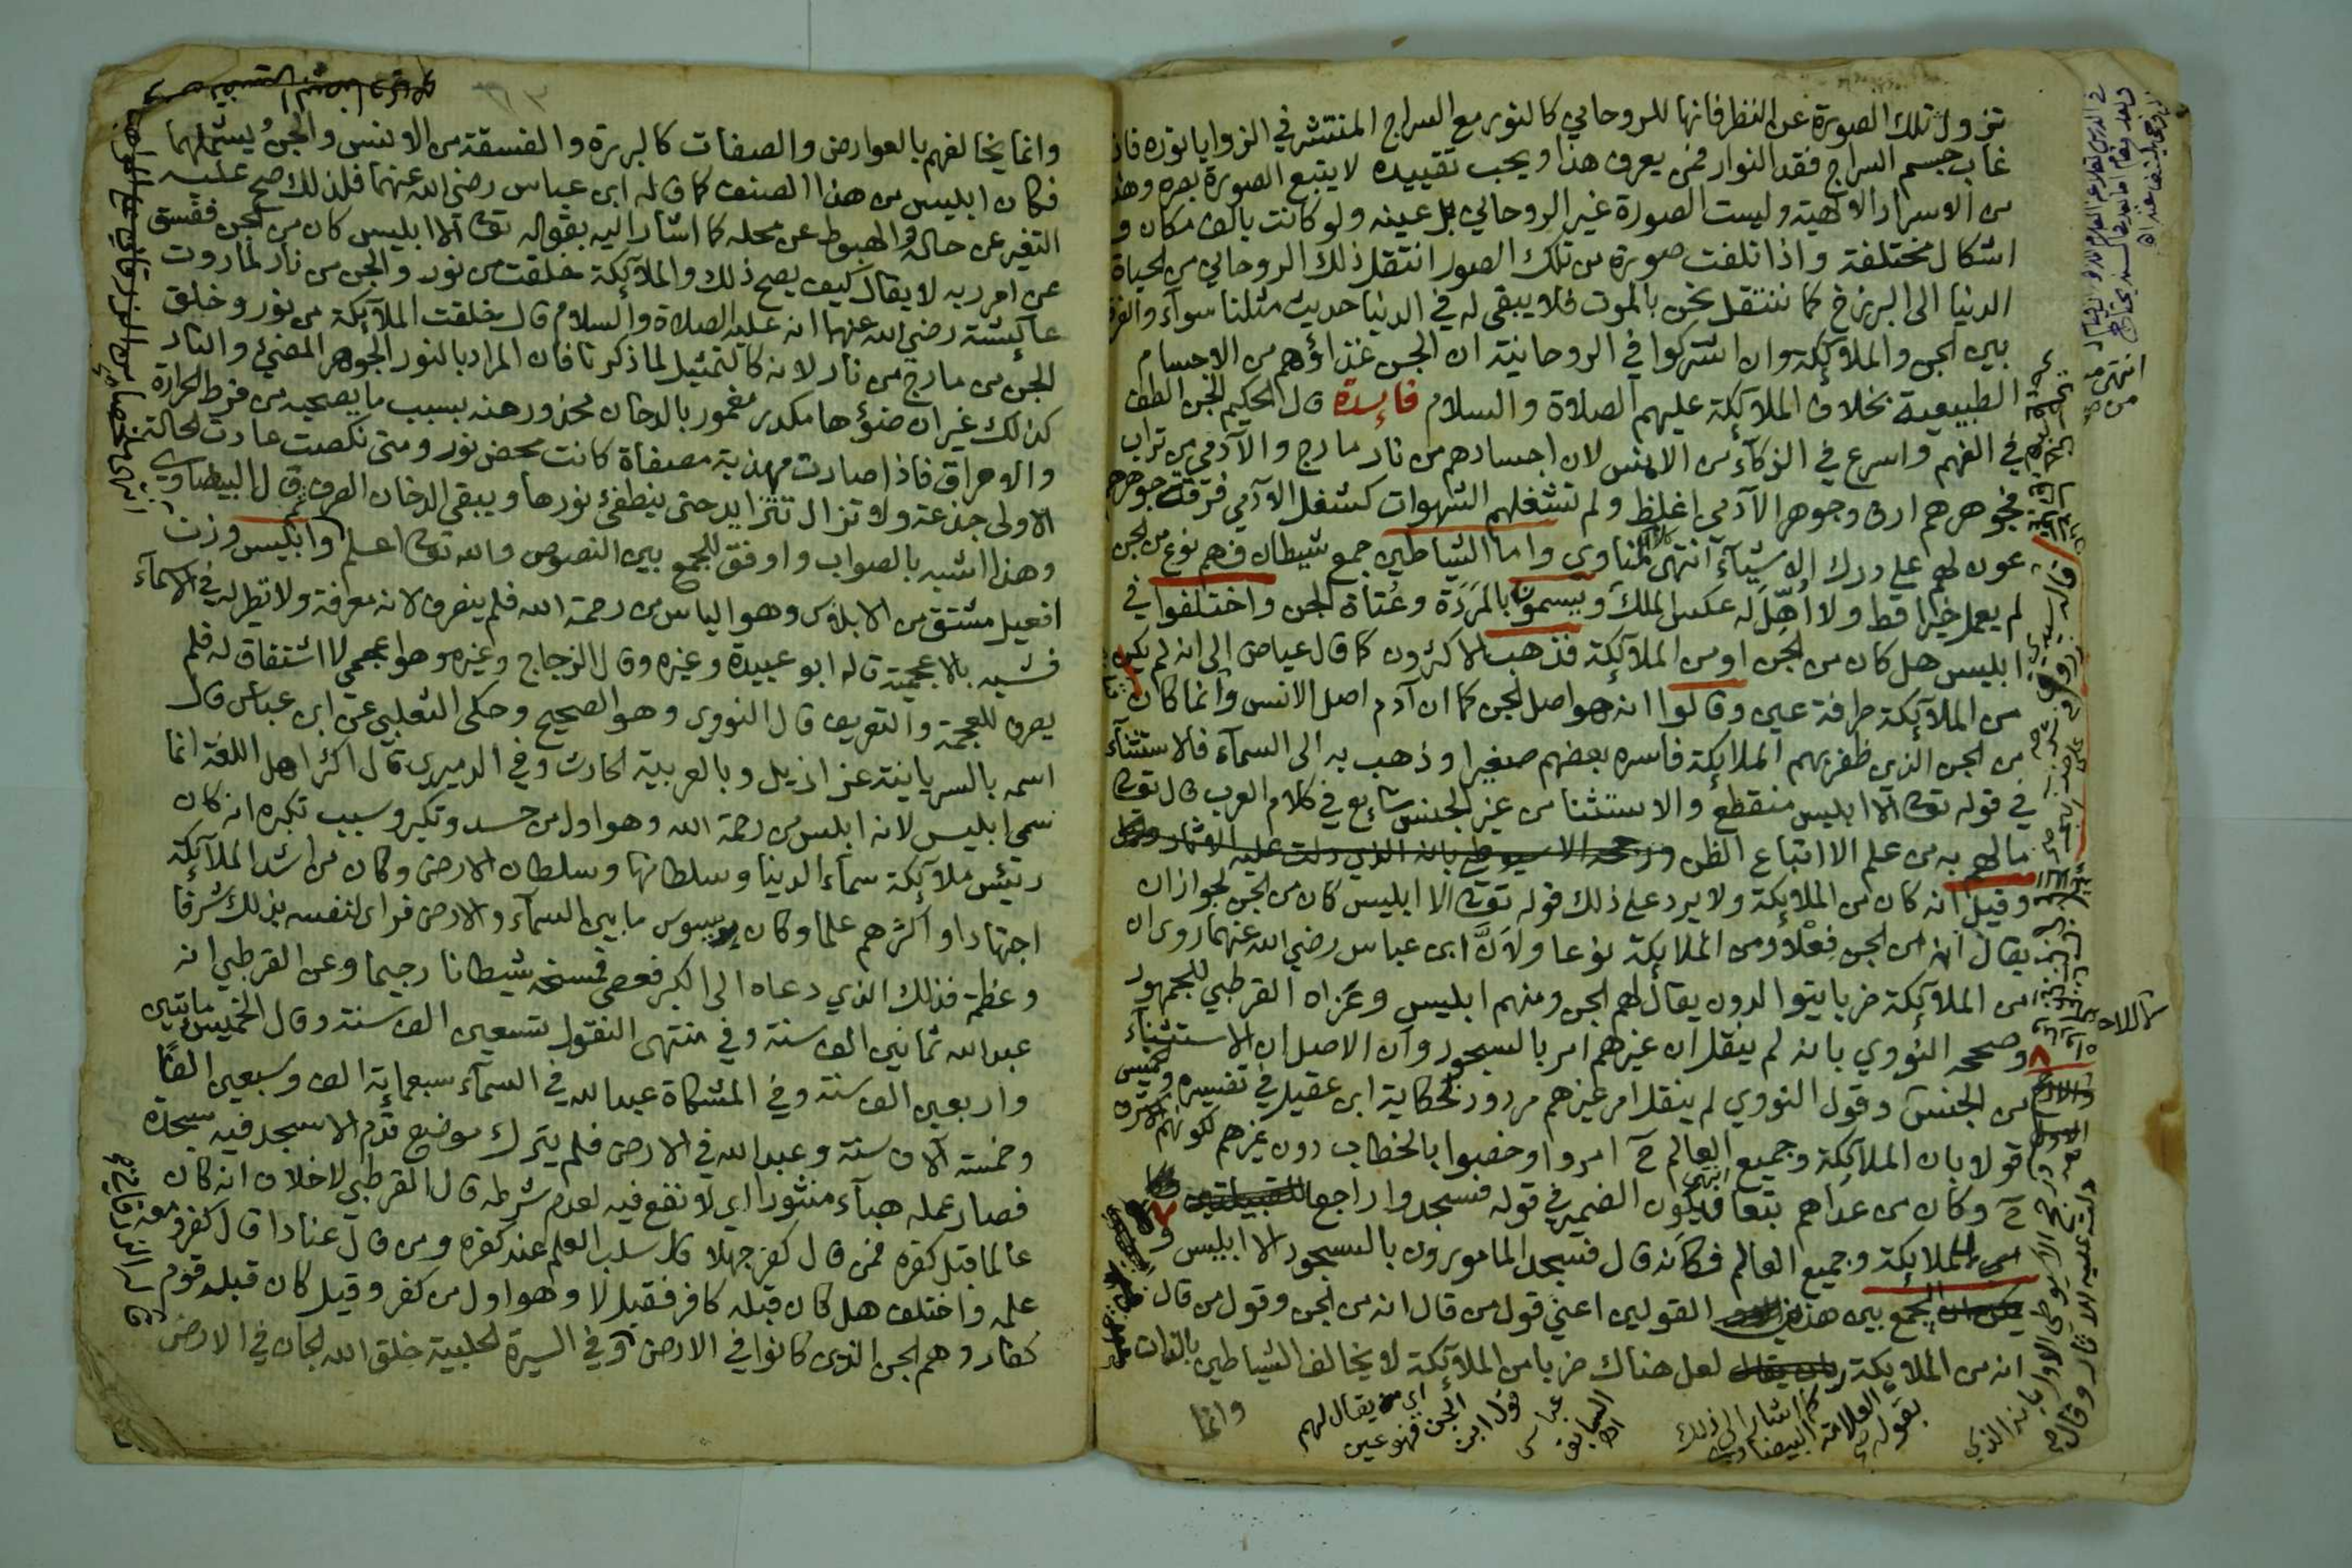 تزول تلك الصورة عن النظر فانها للروحاني كالنور مع السراج المنتشر في الزوايا نوره فاذا
غاب جسم السراج فقد النوار فمن يعرف هذا ويحب تقييده لا يتبع الصورة بصره وهذا
من الاسرار الالهية وليست الصورة غير الروحاني بل عينه ولو كانت بالف مكان و
اشكال مختلفة واذا تلفت صورة من تلك الصور انتقل ذلك الروحاني من الحياة
الدنيا الى البرزخ كما ننتقل نحن بالموت فلا يبقى له في الدنيا حديث مثلنا سوآء والفرق
بين الجن والملائكة وان اشتركوا في الروحانية ان الجن غذاؤهم من الاجسام
الطبيعية بخلاف الملآئكة عليهم الصلاة والسلام فائدة قال الحكيم الجن الطف
في الفهم واسرع في الذكآء من الانس لان اجسادهم من نار مارج والآدمي من تراب
فجوهرهم ارق وجوهر الآدمي اغلظ ولم تشغلهم الشهوات كشغل الآدمي فرقة جوهرهم
عون لهم على درك الاشيآء انتهى المناوى واما الشياطين جمع شيطان فهم نوع من الجن
لم يعمل خيرا قط ولا اُهّل له عكس الملك ويسمون بالمَرَدَة وعُتاة الجن واختلفوا في
ابليس هل كان من الجن او من الملآئكة فذهب الاكثرون كما قال عياض الى انه لم يكن
من الملآئكة طرفة عين وقالوا انه هو اصل الجن كما ان آدم اصل الانس وانما كان
من الجن الذين ظفر بهم الملائكة فاسره بعضهم صغيرا وذهب به الى السمآء فالاستثنآء
في قوله تعالى الا ابليس منقطع والاستثنا من غير الجنس شائع في كلام العرب قال تعالى
ما لهم به من علم الا اتباع الظن ورجحه الاسيوطي بانه الذي دلت عليه الاثار
وقيل انه كان من الملائكة ولا يرد على ذلك قوله تعالى الا ابليس كان من الجن لجواز ان
يقال انه من الجن فِعْلا ومن الملائكة نوعا ولانّ ابن عباس رضي الله عنهما روى ان
من الملآئكة ضربا يتوالدون يقال لهم الجن ومنهم ابليس وعَزاه القرطبي للجمهور
وصححه النووي بانه لم ينقل ان غيرهم امر بالسجود وان الاصل ان الاستثنآء
من الجنس وقول النووي لم ينقل امر غيرهم مردود بحكاية ابن عقيل في تفسيره
قولا بان الملآئكة وجميع العالم ح امروا وخصوا بالخطاب دون غيرهم لكونهم الاشرف
ح وكان من عداهم تبعا فيكون الضمير في قوله فسجدوا راجعا للقبيلتين
من الملائكة وجميع العالم فكانه قال فسجد المامورون بالسجود الا ابليس و
يمكن الجمع بين هذين القولين اعني قول من قال انه من الجن وقول من قال
انه من الملائكة لعل هناك ضربا من الملآئكة لا يخالف الشياطين بالذات
وانما
وانما يخالفهم بالعوارض والصفات كالبررة والفسقة من الانس والجن يشملهما
فكان ابليس من هذا الصنف كما قاله ابن عباس رضي الله عنهما فلذلك صح عليه
التغير عن حاله والهبوط عن محله كما اشار اليه بقوله تعالى الا ابليس كان من الجن ففسق
عن امر ربه لا يقال كيف يصح ذلك والملآئكة خلقت من نور والجن من نار لما روت
عآئشة رضي الله عنها انه عليه الصلاة والسلام قال خلقت الملآئكة من نور وخلق
الجن من مارج من نار لانه كالتمثيل لما ذكرنا فان المراد بالنور الجوهر المضيئ والنار
كذلك غير ان ضوؤها مكدر مغمور بالدخان محذور عنه بسبب ما يصحبه من فرط الحرارة
والاحراق فاذا صارت مهذبة مصفاة كانت محض نور ومتى نكصت عادت لحالته
الاولى جذعة ولا تزال تتزايد حتى ينطفئ نورها ويبقى الدخان الصرف قال البيضاوي
وهذا اشبه بالصواب واوفق للجمع بين النصوص والله تعالى اعلم وابليس وزنه
افعيل مشتق من الابلاس وهو الياس من رحمة الله فلم ينصرف لانه معرفة ولا نظير له في الاسمآء
فشبه بالاعجمية قاله ابو عبيدة وغيره وقال الزجاج وغيره هو اعجمي لا اشتقاق له فلم
يصرف للعجمة والتعريف قال النووي وهو الصحيح وحكى الثعلبي عن ابن عباس قال
اسمه بالسريانية عزازيل وبالعربية الحارث وفي الدميري قال اكثر اهل اللغة انما
سمي ابليس لانه ابلس من رحمة الله وهو اول من حسد وتكبر وسبب تكبره انه كان
رئيس ملآئكة سمآء الدنيا وسلطانها وسلطان الارض وكان من اشد الملآئكة
اجتهادا واكثرهم علما وكان يسوس ما بين السمآء والارض فراى لنفسه بذلك شرفا
وعظمة فذلك الذي دعاه الى الكبر فعصى فمسخه شيطانا رجيما وعن القرطبي انه
عبد الله ثمانين الف سنة وفي منتهى النقول تسعين الف سنة وقال الخميس مايتين
واربعين الف سنة وفي المشكاة عبد الله في السمآء سبعماية الف وسبعين الفًا
وخمسة آلاف سنة وعبد الله في الارض فلم يترك موضع قدم الا سجد فيه سجدة
فصار عمله هبآء منثورا اي لا نفع فيه لعدم شرطه قال القرطبي لا خلاف انه كان
عالما قبل كفره فمن قال كفر جهلا قال سلب العلم عند كفره ومن قال عنادا قال كفر ومعه
علمه واختلف هل كان قبله كافر فقيل لا وهو اول من كفر وقيل كان قبله قوم
كفار وهم الجن الذين كانوا في الارض وفي السيرة الحلبية خلق الله الجان في الارض